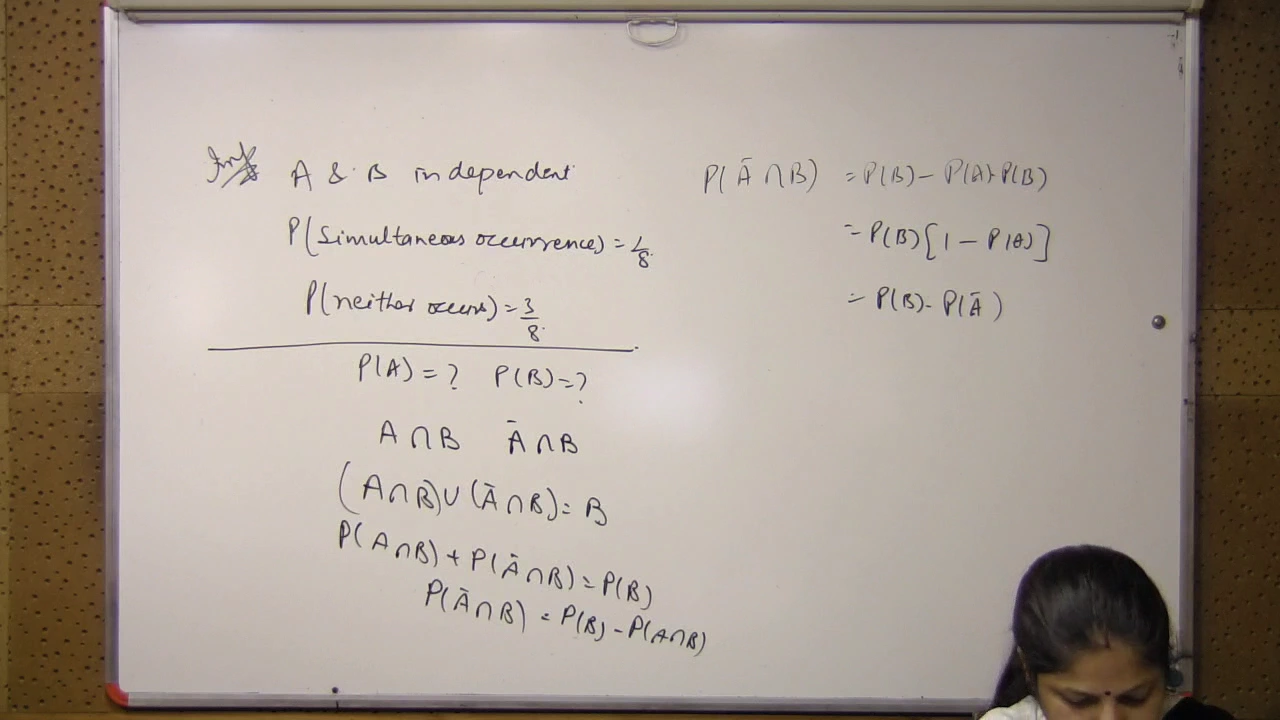 A & B independent
P(Simultaneous occurrence) = 1/8.
P(neither occurs) = 3/8.
P(A) = ? P(B) = ?
A ∩ B Ā ∩ B
(A ∩ B) ∪ (Ā ∩ B) = B
P(A ∩ B) + P(Ā ∩ B) = P(B)
P(Ā ∩ B) = P(B) - P(A ∩ B)
P(Ā ∩ B) = P(B) - P(A) · P(B)
= P(B) [1 - P(A)]
= P(B) · P(Ā)